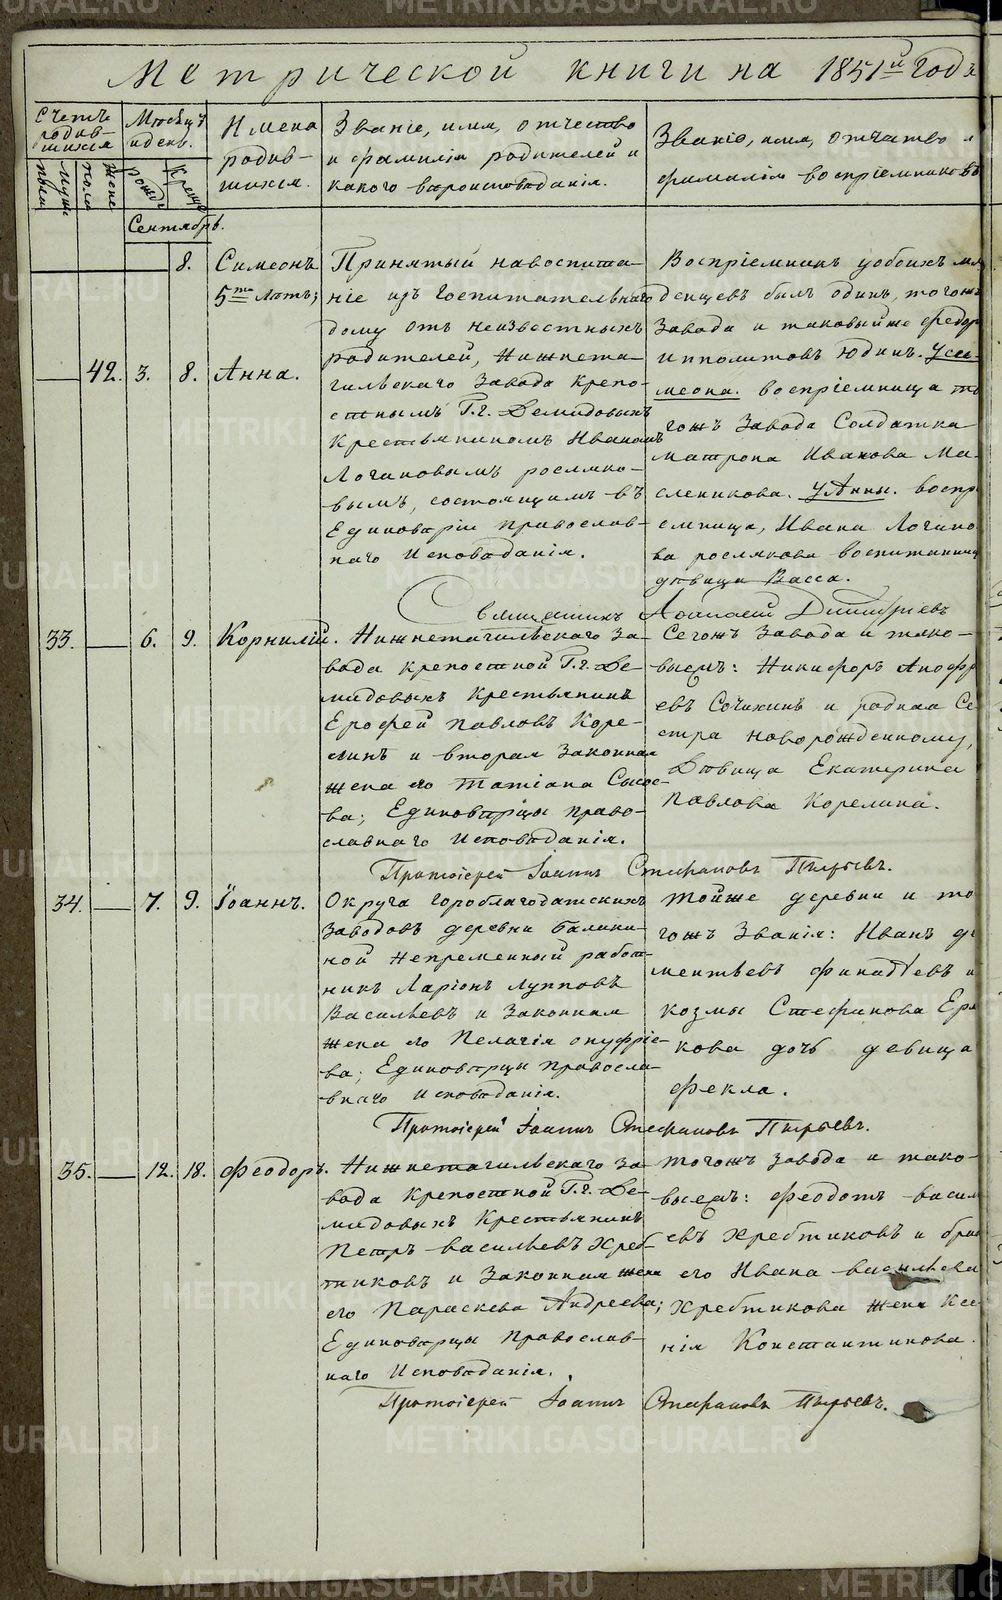 Метрической книги на 1851й годъ
Счетъ родив-
шихся
мужеска
пола
женс
Месяцъ
и день.
рожд
крещ
Имена
родив-
шихся.
Званіе, имя, отчество
и фамилія родителей и
какого вероисповеданія.
Званіе, имя, отчество и
фамилія воспріемниковъ
Сентябрь.
8.
Симеонъ
5ти летъ;
42.
3.
8.
Анна.
Принятый на воспита-
ніе изъ госпитательнаго
дому отъ неизвестныхъ
родителей, Нижнета-
гильскаго завода крепо-
стнымъ Г.г. Демидовыхъ
крестьяниномъ Иваномъ
Логиновымъ росляко-
вымъ, состоящимъ въ
Единоверіи православ-
наго исповеданія.
Воспріемникъ у обоихъ мла
денцевъ былъ одинъ, тогожъ
завода и таковый же Федоръ
Ипполитовъ Юдинъ. У Си-
меона. воспріемница то
гожъ завода Солдатка
матрона Иванова Ма-
сленикова. У Анны. воспр
емница, Ивана Логино
ва рослякова воспитанница
девица Васса.
Священникъ Афанасій Дмитріевъ
33.
6.
9.
Корнилій.
Нижнетагильскаго за-
вода крепостной Г.г. Де-
мидовыхъ крестьянинъ
Ерофей Павловъ Коре-
линъ и вторая законная
жена его Татіана Сысое-
ва; Единоверцы право-
славнаго исповеданія.
Сегожъ завода и тако-
выемъ: Никифоръ Анофр
евъ Сочихинъ и родная Се
стра новорожденному,
Девица Екатерина
Павлова Корелина.
Протоіерей Іоаннъ Стефановъ Пырьевъ.
34.
7.
9.
Іоаннъ.
Округа гороблагодатскихъ
заводовъ деревни Балаки-
ной непременный работ-
никъ Ларіонъ Лупповъ
Васильевъ и законная
жена его Пелагія онуфріе-
ва; Единоверцы правосла-
внаго исповеданія.
Тойже деревни и то
гожъ званія: Иванъ де
ментьевъ финадеевъ и
козмы Стефанова Ерма
кова дочь девица
фекла.
Протоіерей Іоаннъ Стефановъ Пырьевъ.
35.
12.
18.
Феодоръ.
Нижнетагильскаго за-
вода крепостной Г.г. Де-
мидовыхъ крестьянинъ
Петръ васильевъ Хреб-
тиковъ и законная жена
его Параскева Андреева;
Единоверцы православ-
наго исповеданія.
Тогожъ завода и тако-
выемъ: Феодотъ васил
евъ Хребтиковъ и брата
его Ивана васильева
Хребтикова жена Ксе
нія Константинова.
Протоіерей Іоаннъ Стефановъ Пырьевъ.
METRIKI.GASO-URAL.RU